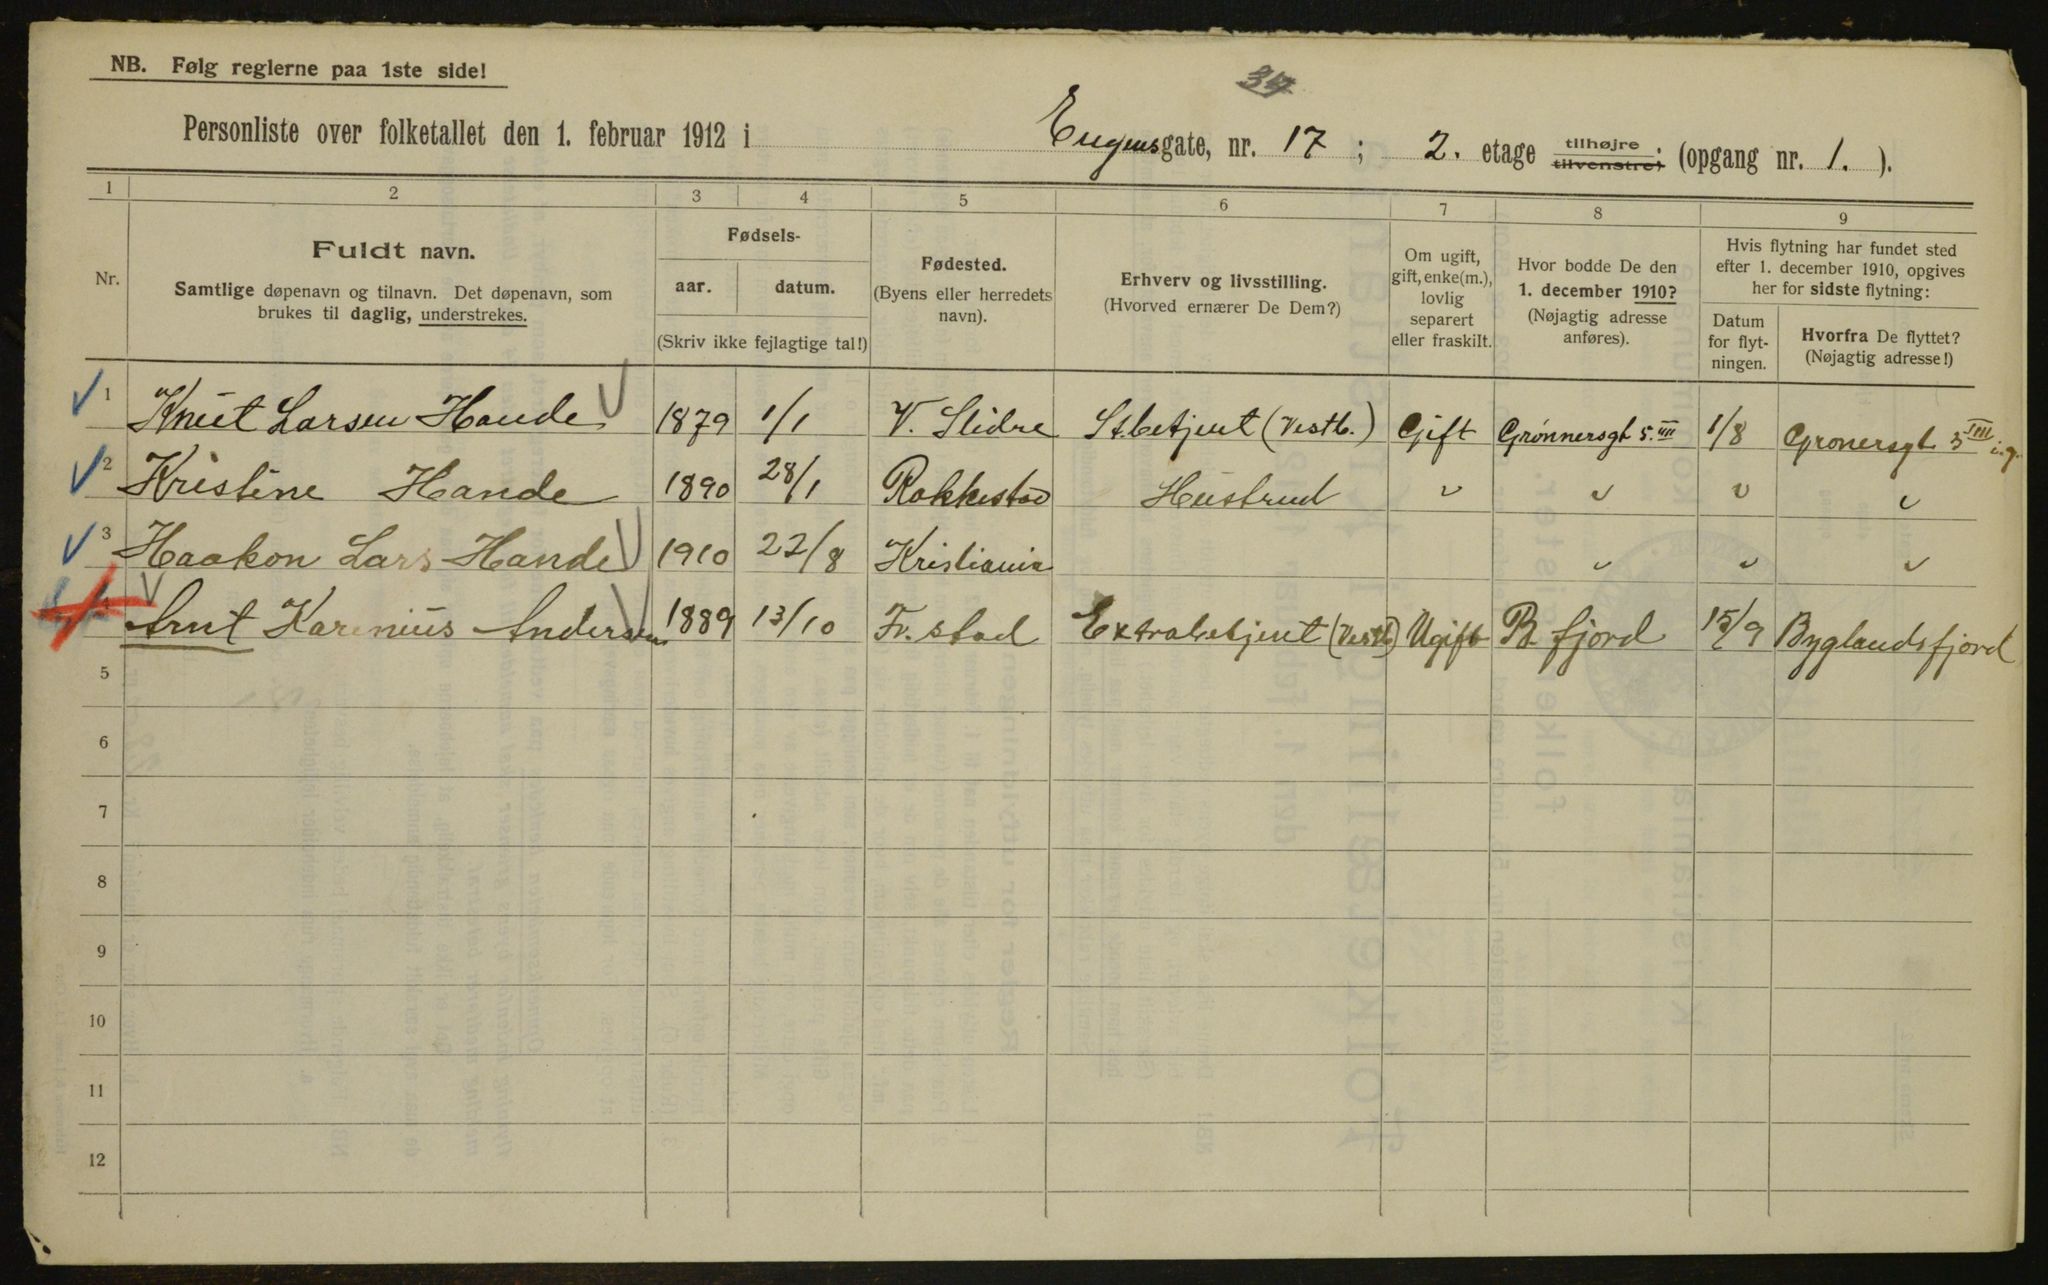 NB. Følg reglerne paa 1ste side!
34
Personliste over folketallet den 1. februar 1912 i Eugensgate, nr. 17; 2. etage tilhøjre tilvenstre; (opgang nr. 1.).
1 2 3 4 5 6 7 8 9
Nr.
Fuldt navn.
Samtlige døpenavn og tilnavn. Det døpenavn, som
brukes til daglig, understrekes.
Fødsels-
aar. datum.
(Skriv ikke fejlagtige tal!)
Fødested.
(Byens eller herredets
navn).
Erhverv og livsstilling.
(Hvorved ernærer De Dem?)
Om ugift,
gift, enke(m.),
lovlig
separert
eller fraskilt.
Hvor bodde De den
1. december 1910?
(Nøjagtig adresse
anføres).
Hvis flytning har fundet sted
efter 1. december 1910, opgives
her for sidste flytning:
Datum
for flyt-
ningen.
Hvorfra De flyttet?
(Nøjagtig adresse!)
1 Knut Larsen Hande 1879 1/1 V. Slidre St.betjent (Vestb.) Gift Grønnersgt 5. III 1/8 Gronersgt 5 III i.g.
2 Kristine Hande 1890 28/1 Rakkestad Hustrud " " " "
3 Haakon Lars Hande 1910 22/8 Kristiania " " "
4 Arnt Karenius Andersen 1889 13/10 Fr.stad Extrabetjent (Vestb) Ugift B fjord 15/9 Byglandsfjord
5
6
7
8
9
10
11
12